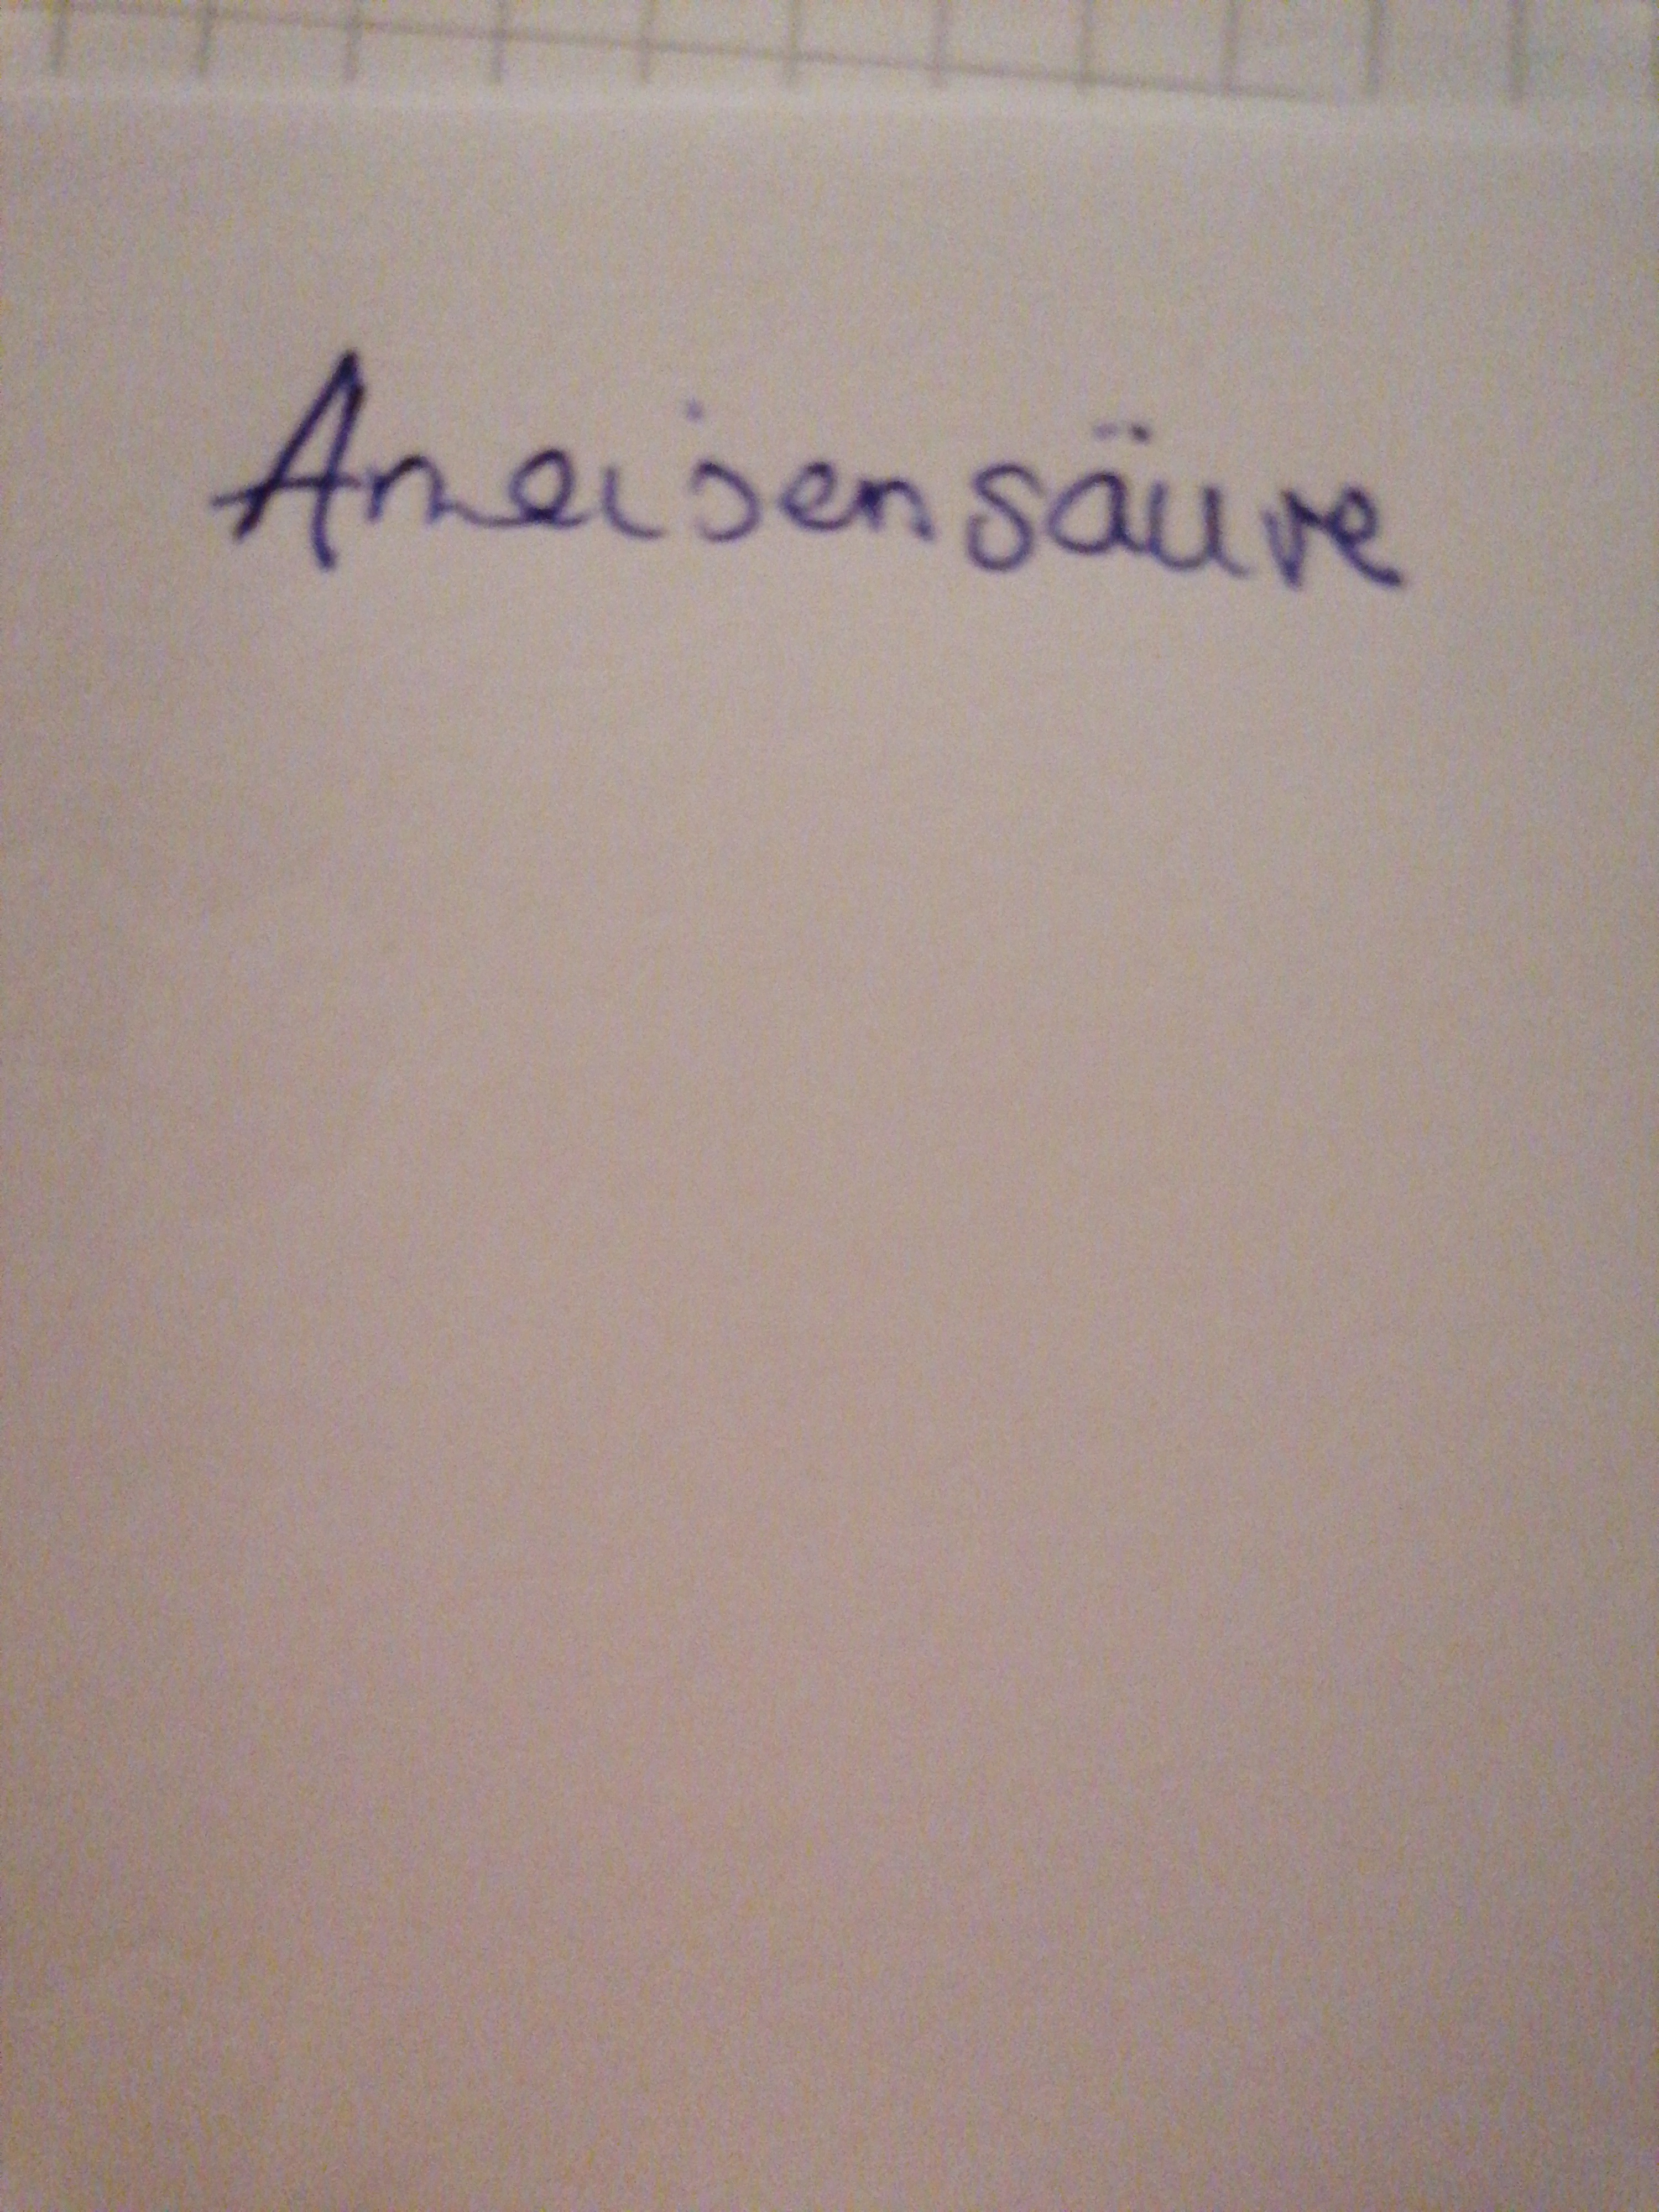 Ameisensäure